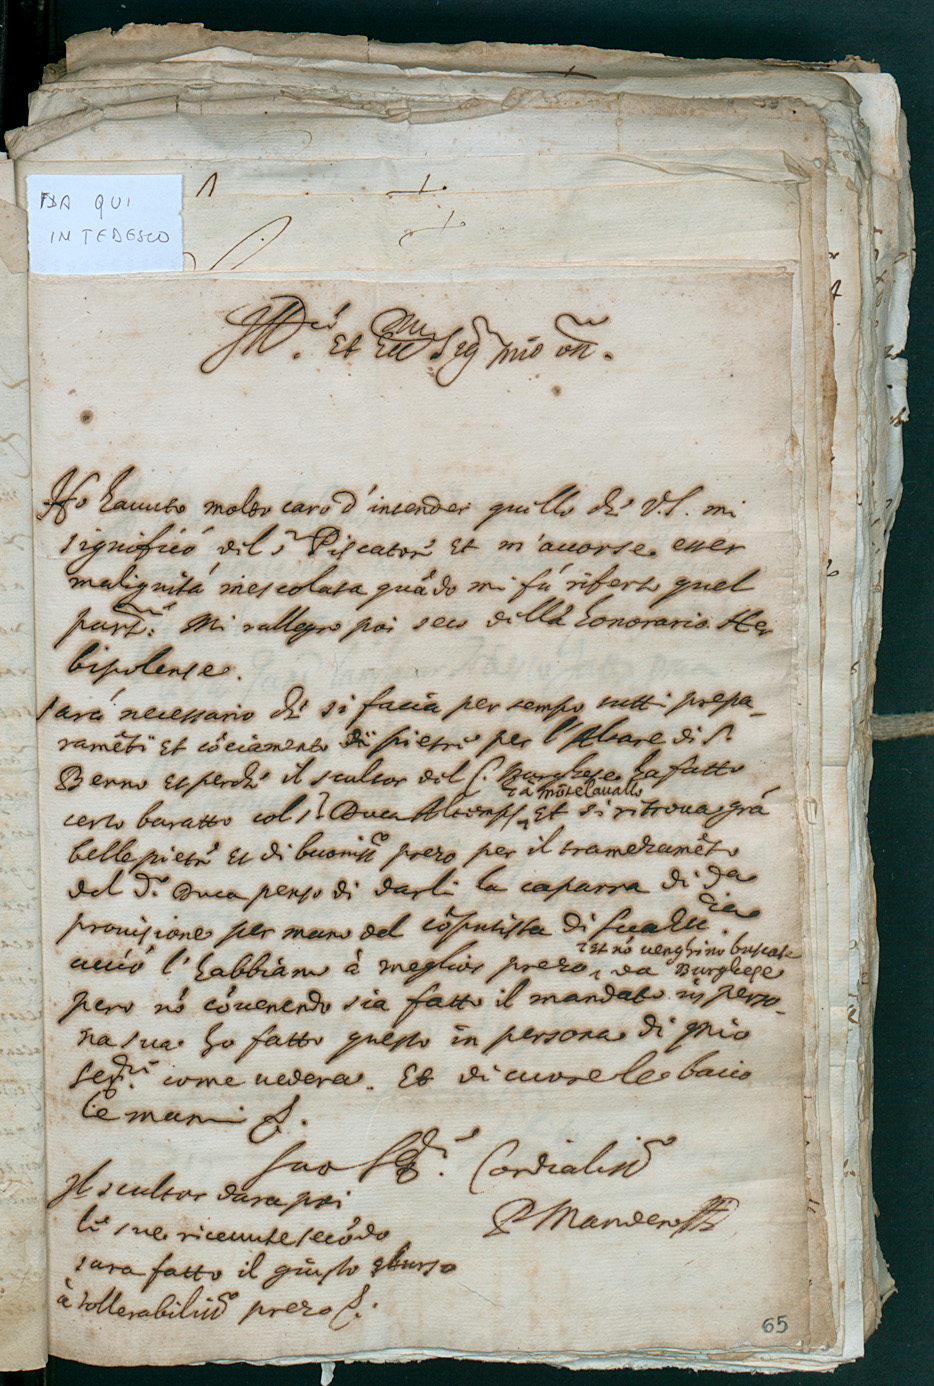 DA QUI
IN TEDESCO
Ill.re et Ecc.mo Sig.r mio oss.mo
Ho hauuto molto caro d'intender quello che V.S. mi
significó del s.r Piscatore et m'accorse esser
malignitá mescolata quãdo mi fú riferto quel
part.re Mi rallegro poi seco della honorario Her
bipolense.
sará necessario che si facia per tempo tutti prepa-
ramẽti et cõciamento di pietre per l'Altare di S.
Benno et perche il scultor del C. Burghese ha fatto
certo baratto col s.r Duca Altemps à mõte Cauallo et si ritroua grã
belle pietre et di buoniss.o prezo per il tramezamẽto
del d.o Duca penso di darli la caparra di
prouisione per mano del cõputista di
acció l'habbiamo à meglior prezo et nõ venghino buscate da Burghese
pero nõ cõuenendo sia fatto il mandato in perso-
na sua ho fatto questo in persona di mio
come uedera. Et di cuore le bacio
le mani
Suo Cordialiss.o
P Mander
Il scultor dara poi
le sue riceuute secõdo
sara fatto il giusto sburso
à tollerabiliss.o prezo
65